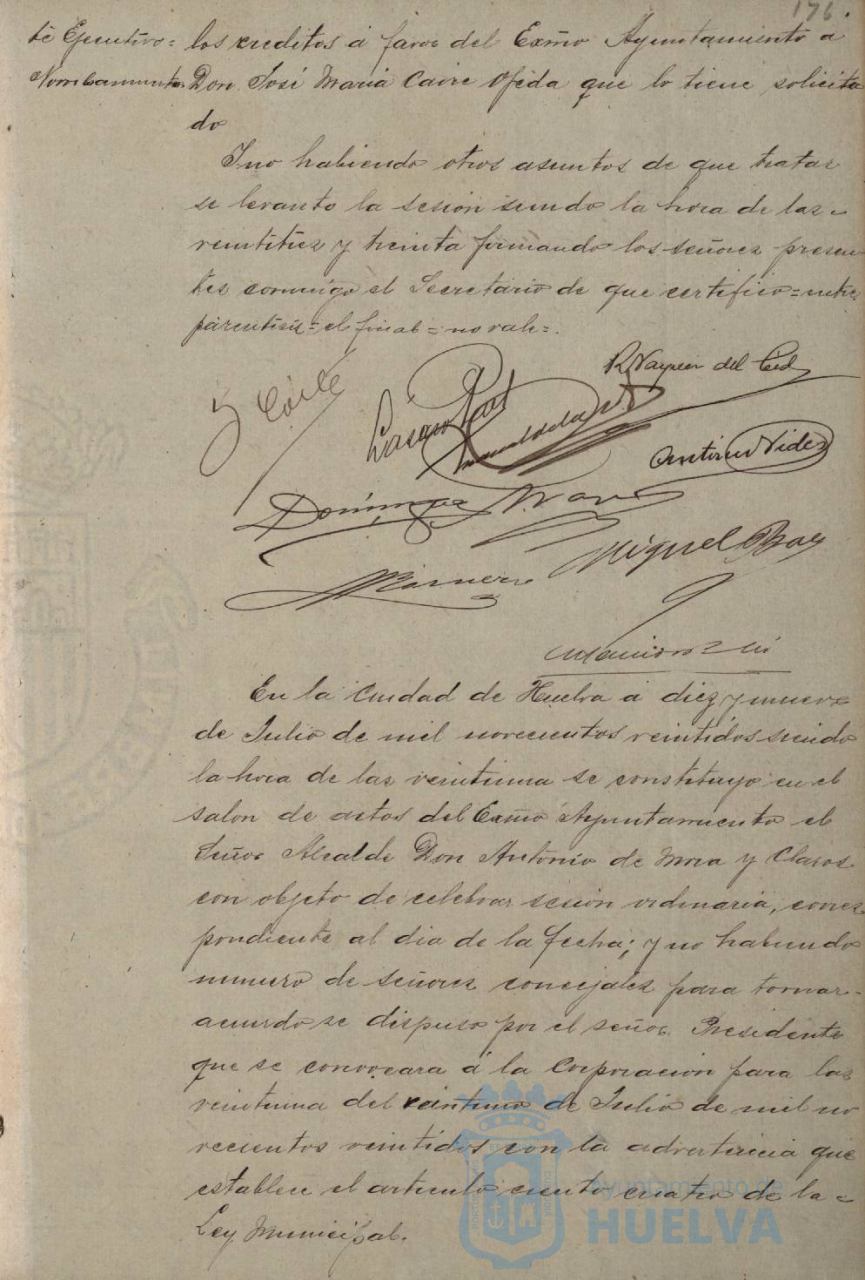 176.
te Ejecutivo=
Nombramiento
los creditos á favor del Exmo Ayuntamiento a
Don José Maria Caire Ojeda que lo tiene solicita
do
Y no habiendo otros asuntos de que tratar
se levanto la sesión siendo la hora de las
veintitres y treinta firmando los señores presen
tes conmigo el Secretario de que certifico=entre
parentisis=el final=no vale=.
del Cid
Domínguez
Miguel Baez
En la Ciudad de Huelva á diez y nueve
de Julio de mil novecientos veintidos siendo
la hora de las veintiuna se constituyo en el
salon de actos del Exmo Ayuntamiento el
Señor Alcalde Don Antonio de Mora y Claros
con objeto de celebrar sesion ordinaria, corres
pondiente al dia de la fecha; y no habiendo
numero de señores concejales para tomar
acuerdo se dispuso por el señor Presidente
que se convocara á la Corporacion para las
veintiuna del veintiuno de Julio de mil no
vecientos veintidos con la advertencia que
establece el articulo ciento cuatro de la=
Ley Municipal.
Ayuntamiento de
HUELVA